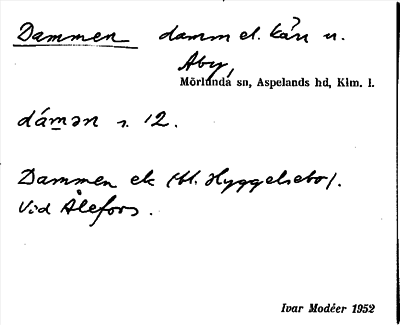 Dammen damm el. kån u.
Åby,
Mörlunda sn, Aspelands hd, Klm. l.
dámən s. 12.
Dammen ek (bl. Hyggelsebo).
Vid Ålefors.
Ivar Modéer 1952